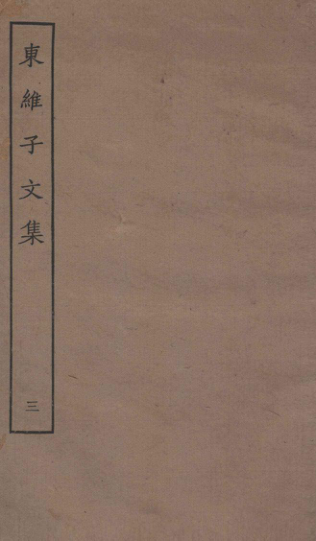 東維子文集
三